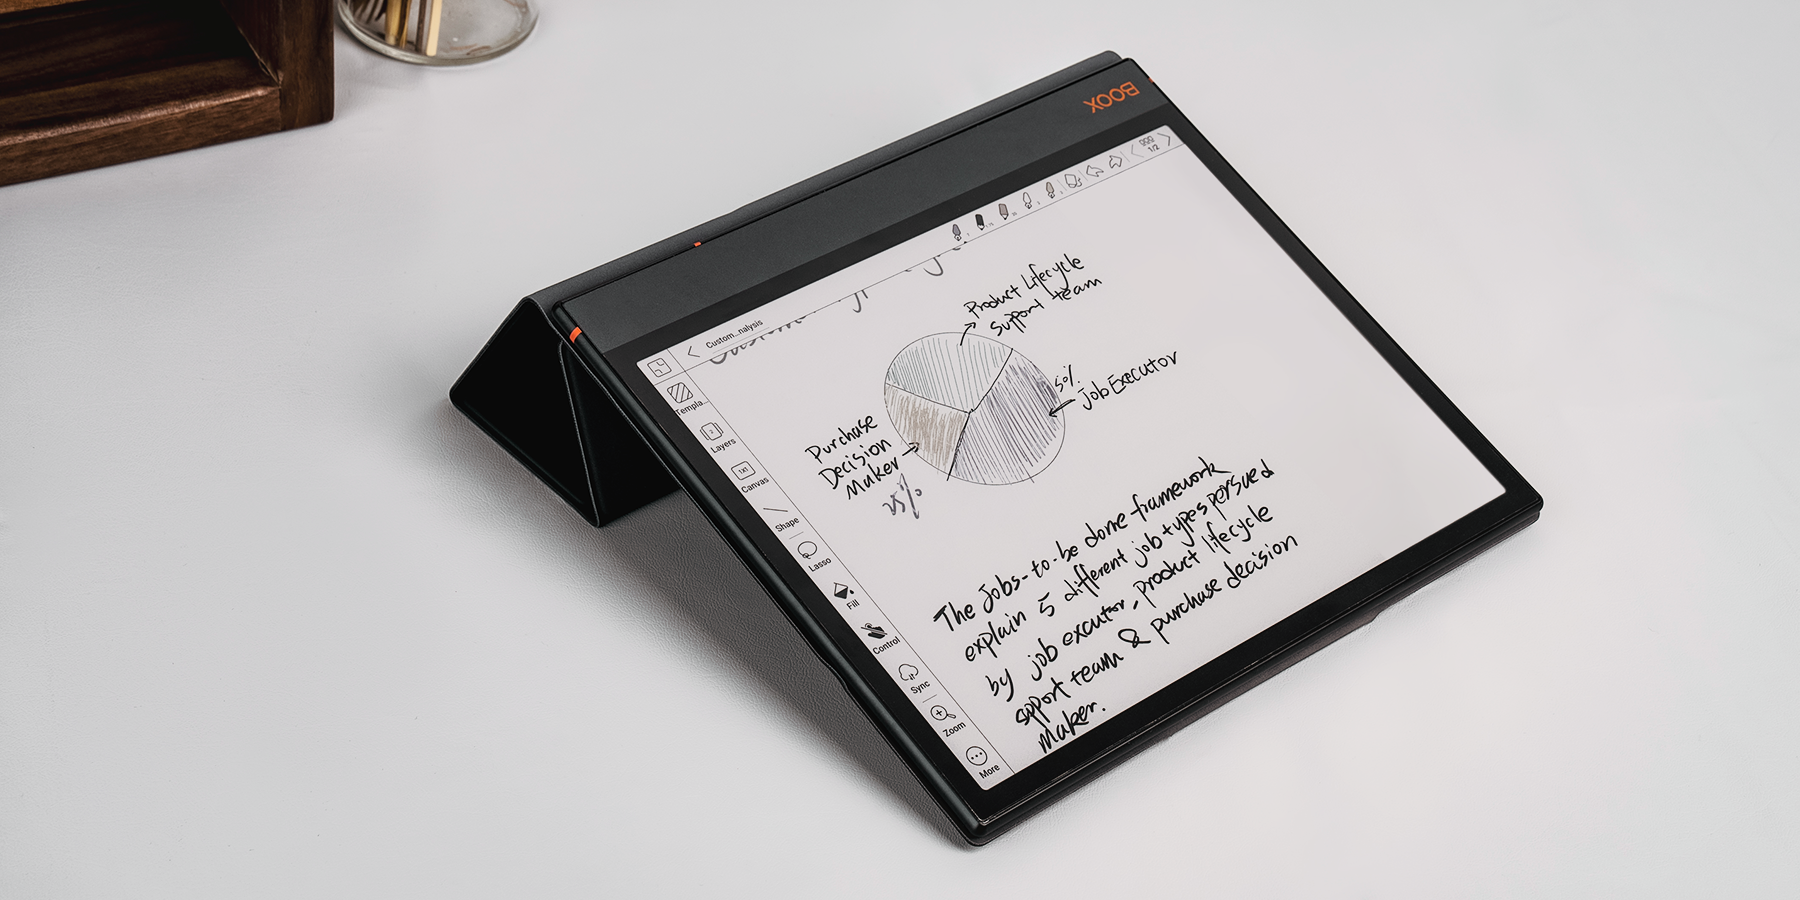 BOOX
1/2
Custom...nalysis
Templa...
Layers
Canvas
Shape
Lasso
Fill
Control
Sync
Zoom
More
Product Lifecycle
support team
50%
Job Executor
Purchase
Decision
Maker
25%
The Jobs-to-be done framework
explain 5 different job types persued
by job excutor, product lifecycle
spport team & purchase decision
maker.